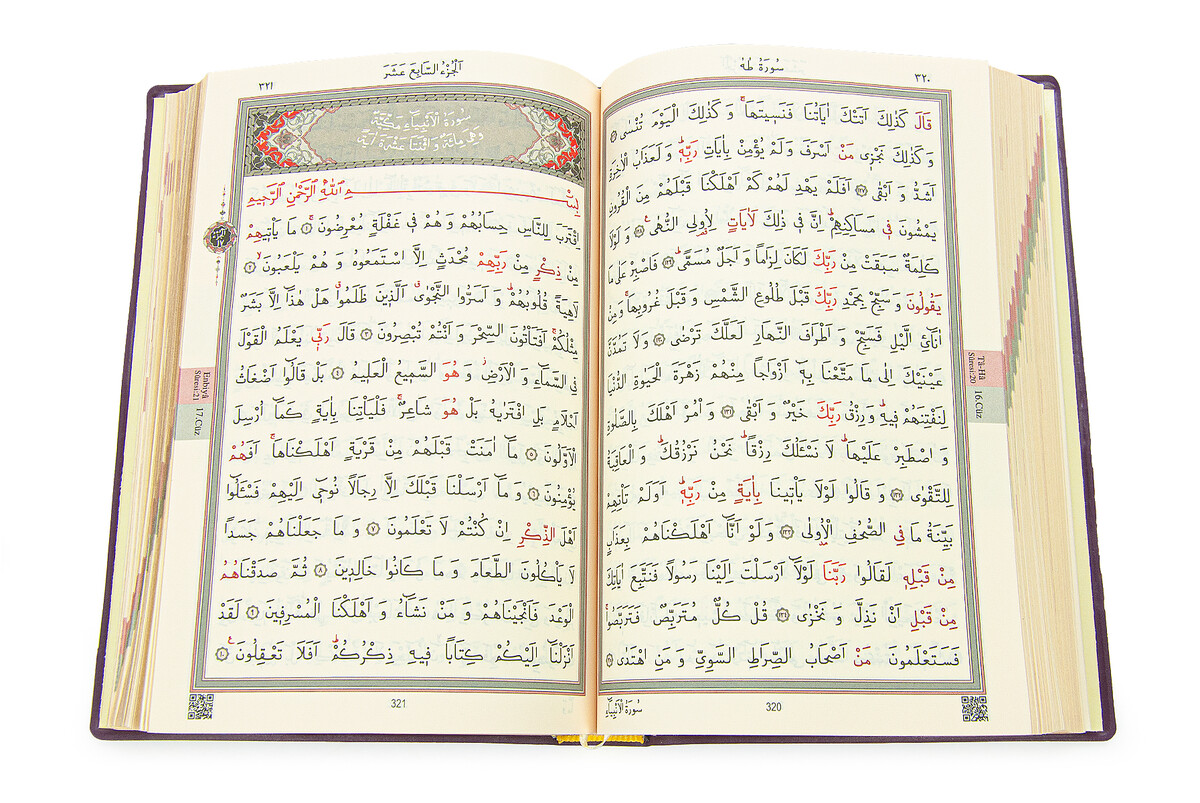 ٣٢٠ سُورَةُ طٰهٰ
قَالَ كَذٰلِكَ اَتَتْكَ اٰيَاتُنَا فَنَسٖيتَهَاۚ وَكَذٰلِكَ الْيَوْمَ تُنْسٰى ﴿١٢٦﴾
وَكَذٰلِكَ نَجْزٖي مَنْ اَسْرَفَ وَلَمْ يُؤْمِنْ بِاٰيَاتِ رَبِّهٖؕ وَلَعَذَابُ الْاٰخِرَةِ
اَشَدُّ وَاَبْقٰى ﴿١٢٧﴾ اَفَلَمْ يَهْدِ لَهُمْ كَمْ اَهْلَكْنَا قَبْلَهُمْ مِنَ الْقُرُونِ
يَمْشُونَ فٖي مَسَاكِنِهِمْؕ اِنَّ فٖي ذٰلِكَ لَاٰيَاتٍ لِاُولِي النُّهٰى ﴿١٢٨﴾ وَلَوْلَا
كَلِمَةٌ سَبَقَتْ مِنْ رَبِّكَ لَكَانَ لِزَامًا وَاَجَلٌ مُسَمًّىؕ ﴿١٢٩﴾ فَاصْبِرْ عَلٰى مَا
يَقُولُونَ وَسَبِّحْ بِحَمْدِ رَبِّكَ قَبْلَ طُلُوعِ الشَّمْسِ وَقَبْلَ غُرُوبِهَاۚ وَمِنْ
اٰنَائِ الَّيْلِ فَسَبِّحْ وَاَطْرَافَ النَّهَارِ لَعَلَّكَ تَرْضٰى ﴿١٣٠﴾ وَلَا تَمُدَّنَّ
عَيْنَيْكَ اِلٰى مَا مَتَّعْنَا بِهٖٓ اَزْوَاجًا مِنْهُمْ زَهْرَةَ الْحَيٰوةِ الدُّنْيَا
لِنَفْتِنَهُمْ فٖيهِؕ وَرِزْقُ رَبِّكَ خَيْرٌ وَاَبْقٰى ﴿١٣١﴾ وَأْمُرْ اَهْلَكَ بِالصَّلٰوةِ
وَاصْطَبِرْ عَلَيْهَاؕ لَا نَسْـَٔلُكَ رِزْقًاؕ نَحْنُ نَرْزُقُكَؕ وَالْعَاقِبَةُ
لِلتَّقْوٰى ﴿١٣٢﴾ وَقَالُوا لَوْلَا يَأْتٖينَا بِاٰيَةٍ مِنْ رَبِّهٖؕ اَوَلَمْ تَأْتِهِمْ
بَيِّنَةُ مَا فِي الصُّحُفِ الْاُولٰى ﴿١٣٣﴾ وَلَوْ اَنَّٓا اَهْلَكْنَاهُمْ بِعَذَابٍ
مِنْ قَبْلِهٖ لَقَالُوا رَبَّنَا لَوْلَٓا اَرْسَلْتَ اِلَيْنَا رَسُولًا فَنَتَّبِعَ اٰيَاتِكَ
مِنْ قَبْلِ اَنْ نَذِلَّ وَنَخْزٰى ﴿١٣٤﴾ قُلْ كُلٌّ مُتَرَبِّصٌ فَتَرَبَّصُواۚ
فَسَتَعْلَمُونَ مَنْ اَصْحَابُ الصِّرَاطِ السَّوِيِّ وَمَنِ اهْتَدٰى ﴿١٣٥﴾
سُورَةُ الْاَنْبِيَٓاءِ
320
Tâ-Hâ
Sûresi:20
16.Cüz
اَلْجُزْءُ السَّابِعَ عَشَرَ ٣٢١
سُورَةُ الْاَنْبِيَٓاءِ مَكِّيَّةٌ
وَهِيَ مِائَةٌ وَاثْنَتَا عَشْرَةَ اٰيَةً
بِسْمِ اللّٰهِ الرَّحْمٰنِ الرَّحٖيمِ
اِقْتَرَبَ لِلنَّاسِ حِسَابُهُمْ وَهُمْ فٖي غَفْلَةٍ مُعْرِضُونَۚ ﴿١﴾ مَا يَأْتٖيهِمْ
مِنْ ذِكْرٍ مِنْ رَبِّهِمْ مُحْدَثٍ اِلَّا اسْتَمَعُوهُ وَهُمْ يَلْعَبُونَۙ ﴿٢﴾
لَاهِيَةً قُلُوبُهُمْؕ وَاَسَرُّوا النَّجْوٰىۗ اَلَّذٖينَ ظَلَمُواۗ هَلْ هٰذَٓا اِلَّا بَشَرٌ
مِثْلُكُمْۚ اَفَتَأْتُونَ السِّحْرَ وَاَنْتُمْ تُبْصِرُونَ ﴿٣﴾ قَالَ رَبّٖي يَعْلَمُ الْقَوْلَ
فِي السَّمَٓاءِ وَالْاَرْضِؗ وَهُوَ السَّمٖيعُ الْعَلٖيمُ ﴿٤﴾ بَلْ قَالُٓوا اَضْغَاثُ
اَحْلَامٍ بَلِ افْتَرٰيهُ بَلْ هُوَ شَاعِرٌۚ فَلْيَأْتِنَا بِاٰيَةٍ كَمَٓا اُرْسِلَ
الْاَوَّلُونَ ﴿٥﴾ مَٓا اٰمَنَتْ قَبْلَهُمْ مِنْ قَرْيَةٍ اَهْلَكْنَاهَاۚ اَفَهُمْ
يُؤْمِنُونَ ﴿٦﴾ وَمَٓا اَرْسَلْنَا قَبْلَكَ اِلَّا رِجَالًا نُوحٖٓي اِلَيْهِمْ فَسْـَٔلُٓوا
اَهْلَ الذِّكْرِ اِنْ كُنْتُمْ لَا تَعْلَمُونَ ﴿٧﴾ وَمَا جَعَلْنَاهُمْ جَسَدًا
لَا يَأْكُلُونَ الطَّعَامَ وَمَا كَانُوا خَالِدٖينَ ﴿٨﴾ ثُمَّ صَدَقْنَاهُمُ
الْوَعْدَ فَاَنْجَيْنَاهُمْ وَمَنْ نَشَٓاءُ وَاَهْلَكْنَا الْمُسْرِفٖينَ ﴿٩﴾ لَقَدْ
اَنْزَلْنَٓا اِلَيْكُمْ كِتَابًا فٖيهِ ذِكْرُكُمْؕ اَفَلَا تَعْقِلُونَ۟ ﴿١٠﴾
321
Enbiyâ
Sûresi:21
17.Cüz